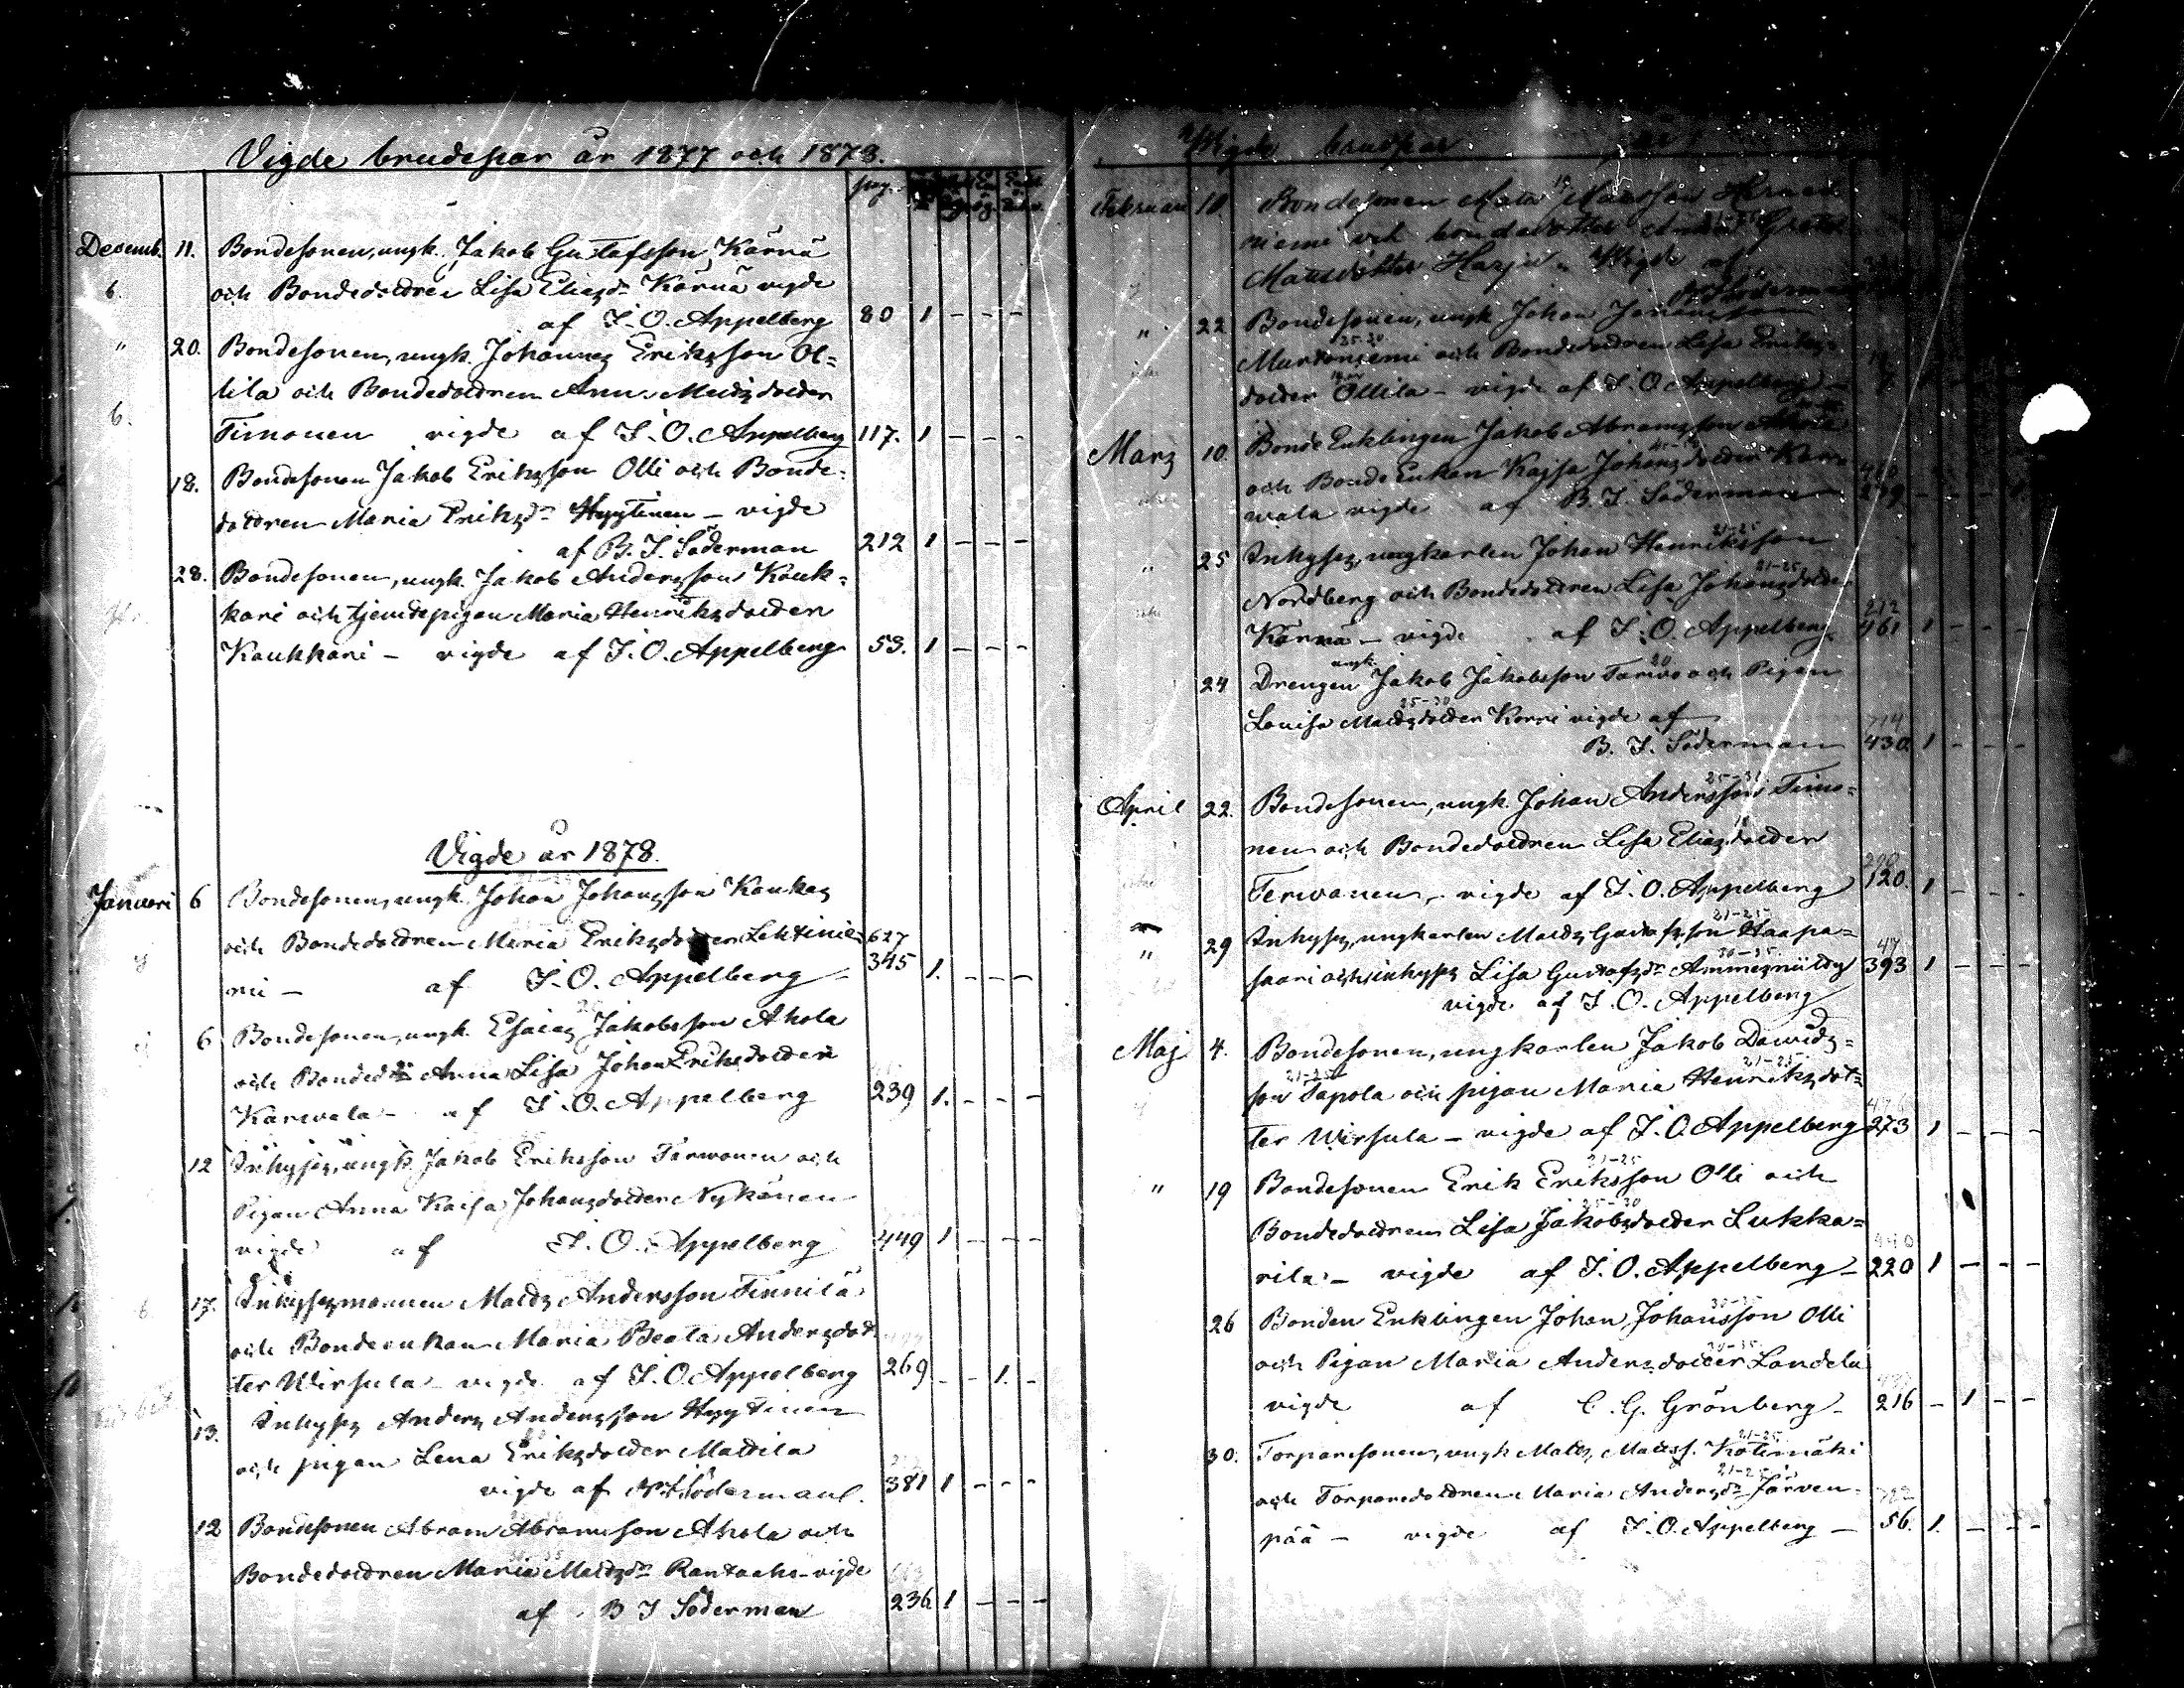 Vigde brudepar år 1877 och 1878.
pag.
Decemb. 11. Bondesonen, ungk. Jakob Gustafsson Kärnä
och Bondedottren Lisa Eliasdr Kärnä vigde
af J. O. Appelberg 80 1 - - -
" 20. Bondesonen, ungk. Johannes Eriksson Ol=
lila och Bondedottren Anna Mattsdotter
Timonen vigde af J. O. Appelberg 117. 1 - - -
18. Bondesonen Jakob Eriksson Olli och Bonde=
dottren Maria Eriksdr Hyytinen - vigde
af B. J. Söderman 212 1 - - -
28. Bondesonen, ungk. Jakob Andersson Kauk=
kari och tjenstepigan Maria Henriksdotter
Kaukkari - vigde af J. O. Appelberg 53. 1 - - -
Vigde år 1878.
Januari 6 Bondesonen, ungk. Johan Johansson Kaukas
och Bondedottren Maria Eriksdotter Lehtinie= 627
mi - af J. O. Appelberg 345 1. - - -
6 Bondesonen, ungk. Esaias Jakobsson Ahola
och Bondedr Anna Lisa Johan Eriksdotter
Karvala - af J. O. Appelberg 239 1. - - -
12 Inhyses, ungk. Jakob Eriksson Tarvonen och
Pigan Anna Kaisa Johansdotter Nykänen
vigde af J. O. Appelberg 449 1 - - -
17. Inhysesmannen Matts Andersson Finnilä
och Bondeenkan Maria Beata Andersdot
ter Wirsula - vigde af J. O. Appelberg 269 - - 1. -
13. Inhyses Anders Andersson Hyytinen
och pigan Lena Eriksdotter Mattila
vigde af B. J. Söderman 381 1 - - -
12 Bondesonen Abram Abramsson Ahola och
Bondedottren Maria Mattsdr Rantaaho - vigde
af B J Söderman 236 1 - - -
Vigde brudpar
Februari 10. Bondesonen Matts Mattsson
niemi och bondedotter Greta
Mattsdotter Harju. Vigde af
Söderman
" 22 Bondesonen, ungk. Johan Johansson
25-30
Martoniemi och Bondedottren Lisa Eriks=
dotter Ollila - vigde af J. O. Appelberg -
Mars 10. Bonde Enklingen Jakob Abramsson Ahola
och Bonde Enkan Kajsa Johansdotter Kar=
vala vigde af B. J. Söderman 239 - - -
21-25
" 25 Inhyses, ungkarlen Johan Henriksson
21-25
Nordberg och Bondedottren Lisa Johansdotter
212
Kärnä - vigde af J. O. Appelberg 461 1 - - -
ungk. 20
24 Drengen Jakob Jakobsson Tarvo och Pigan
25-30
Lovisa Mattsdotter Korri vigde af
714
B. J. Söderman 430. 1 - - -
25-31
April 22. Bondesonen, ungk. Johan Andersson Timo=
18
nen och Bondedottren Lisa Eliasdotter
Tervanen - vigde af J. O. Appelberg 120. 1 - - -
21-25
" 29 Inhyses, ungkarlen Matts Gustafsson Haapa=
30-35 47
saari och inhyses Lisa Gustafsdr Ammesmäldy 393 1 - - -
vigde af J. O. Appelberg
Maj 4. Bondesonen, ungkarlen Jakob Davids=
21-25 21-25
son Tapola och pigan Maria Henriksdot=
ter Wirsula - vigde af J. O. Appelberg 273 1 - - -
21-25
" 19 Bondesonen Erik Eriksson Olli och
25-30
Bondedottren Lisa Jakobsdotter Lukka=
240
rila - vigde af J. O. Appelberg - 220 1 - - -
30-35
26 Bonden Enklingen Johan Johansson Olli
30-35
och Pigan Maria Andersdotter Landela
vigde af C. G. Grönberg - 216 - 1 - -
21-25
30. Torparesonen, ungk Matts Mattss. Kotimäki
21-25
och Torparedottren Maria Andersdr Järven=
pää - vigde af J. O. Appelberg - 56. 1. - - -